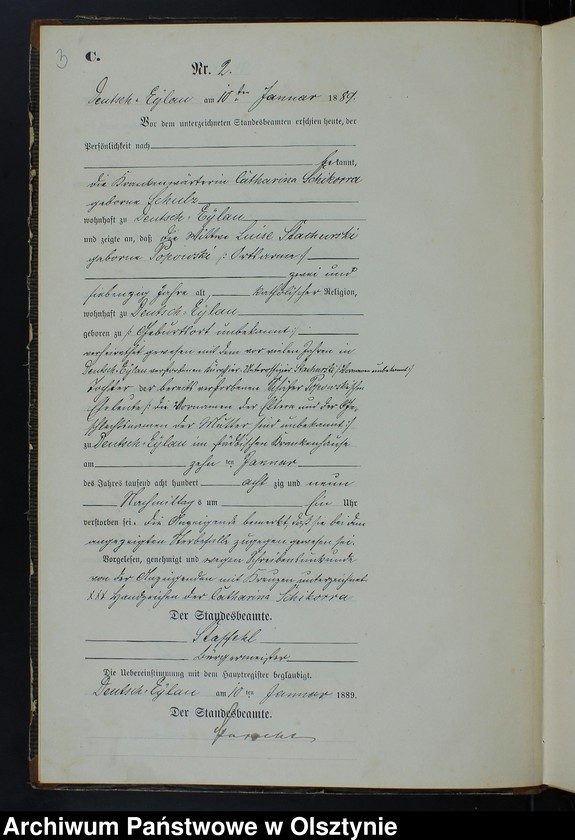 3
C.
Nr. 2.
Deutsch-Eylau am 10ten Januar 1889.
Vor dem unterzeichneten Standesbeamten erschien heute, der
Persönlichkeit nach
bekannt,
die Krankenwärterin Catharina Schikorra
geborne Schulz
wohnhaft zu Deutsch-Eylau
und zeigte an, daß die Wittwe Luise Stachurski
geborne Popowski /: Ortsarme :/
zwei und
siebenzig Jahre alt, katholischer Religion,
wohnhaft zu Deutsch-Eylau
geboren zu /: Geburtsort unbekannt :/
verheirathet gewesen mit dem vor vielen Jahren in
Deutsch-Eylau verstorbenen Stachurski /: Vornamen unbekannt :/
Tochter der bereits verstorbenen Schäfer Popowski'schen
Eheleute /: die Vornamen der Eltern und der Ge-
schlechtsnamen der Mutter sind unbekannt :/
zu Deutsch-Eylau im städtischen Krankenhause
am zehn ten Januar
des Jahrs tausend acht hundert acht zig und neun
Nachmittags um Ein Uhr
verstorben sei. Die Anzeigende bemerkt, daß sie bei dem
angezeigten Sterbefalle zugegen gewesen sei.
Vorgelesen, genehmigt und wegen Schreibensunkunde
von der Anzeigenden mit Kreuzen unterzeichnet
XXX Handzeichen der Catharina Schikorra
Der Standesbeamte.
Staffehl
Bürgermeister
Die Uebereinstimmung mit dem Hauptregister beglaubigt.
Deutsch-Eylau am 10ten Januar 1889.
Der Standesbeamte.
Archiwum Państwowe w Olsztynie